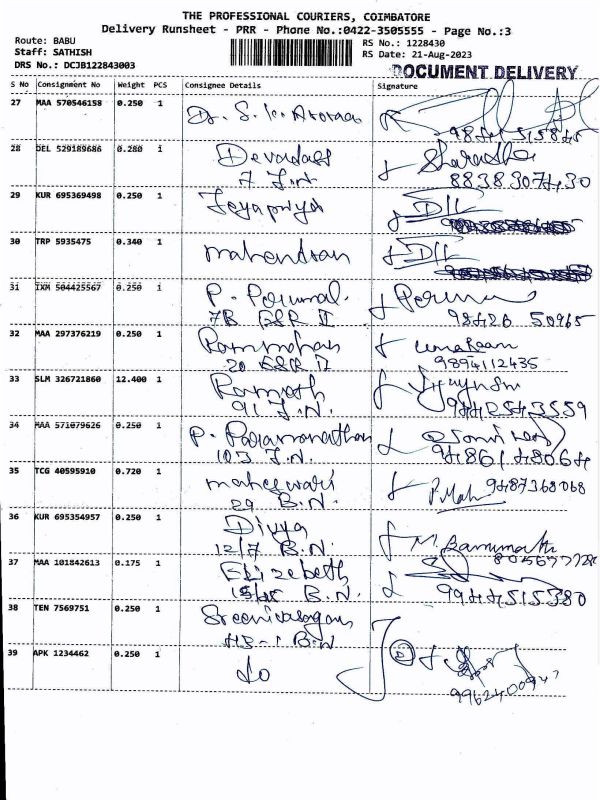 THE PROFESSIONAL COURIERS, COIMBATORE
Delivery Runsheet - PRR - Phone No.:0422-3505555 - Page No.:3
Route: BABU
Staff: SATHISH
DRS No.: DCJB122843003
RS No.: 1228430
RS Date: 21-Aug-2023
DOCUMENT DELIVERY
S No Consignment No Weight PCS Consignee Details Signature
27 MAA 570546158 0.250 1 Dr. S.
28 DEL 529189686 0.280 1 Devadass
7 J.N 8838307430
29 KUR 695369498 0.250 1 Jeyapriya
30 TRP 5935475 0.340 1 Mahendran
31 IXM 504425567 0.250 1 P. Perumal
7B E&R II 98426 50965
32 MAA 297376219 0.250 1 Rammohan
20 E&R II 9894112435
33 SLM 326721860 12.400 1 Ramesh
91 J.N. 9442543559
34 MAA 571079626 0.250 1 P. Paramanathan
103 J.N. 9486148064
35 TCG 40595910 0.720 1 Maheswari P. Mah 9487368068
29 B.N.
36 KUR 695354957 0.250 1 Divya M. Banumathi
12/7 B.N.
37 MAA 101842613 0.175 1 Elizebeth
B.N. 9944515380
38 TEN 7569751 0.250 1 Sreenivasagan
HB-1 B.N
39 APK 1234462 0.250 1 do D